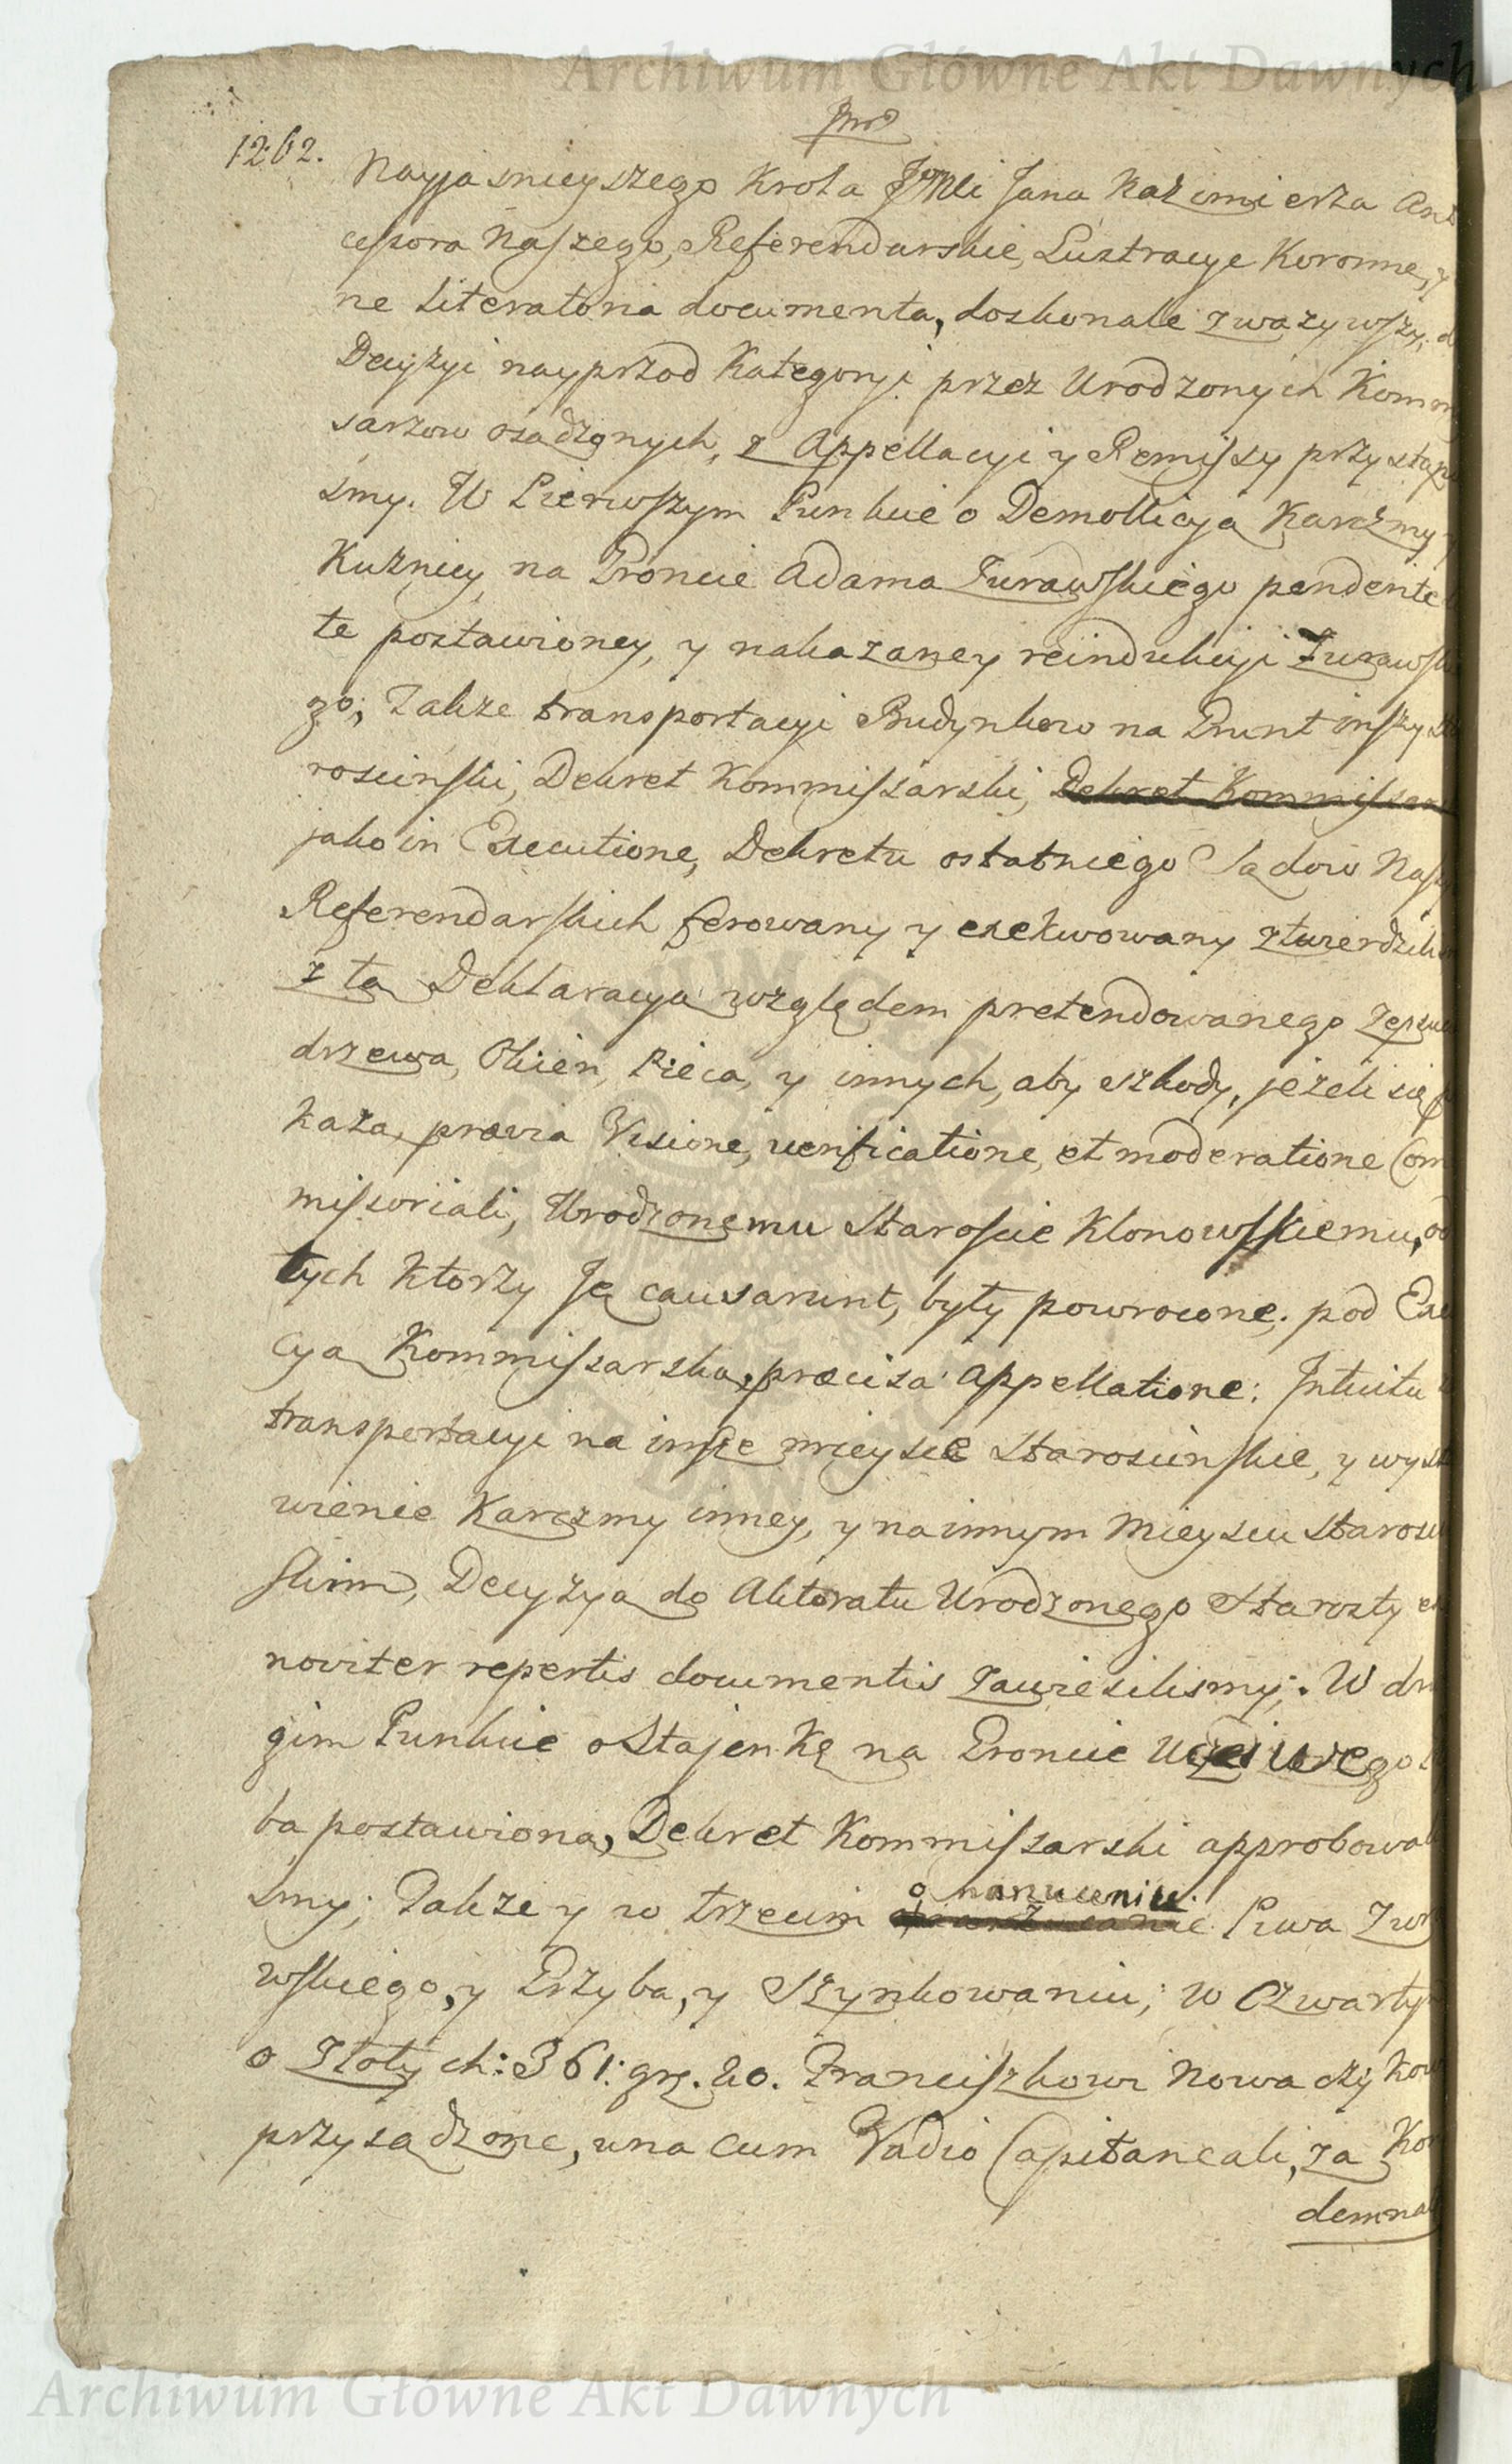 Archiwum Główne Akt Dawnych
1262.
Nayjasnieyszego Krola JMci Jana Kazimierza Ant
cessora Naszego, Referendarskie, Lustracye Koronne, y
ne Literatoria documenta, doskonale zwazywszy, d
Decyzyi nayprzod Kategoryi przez Urodzonych Komm
sarzow osądzonych, z Appellacyi y Remissy przystąp
smy. W Pierwszym Punkcie o Demollicyą Karczmy y
Kuznicy, na Groncie Adama Zurawskiego pendente
te postawioney, y nakazaney reindukcyi Zurawski
go; Takze transportacyi Budynkow na Grunt inszy Sta
roscinski, Dekret Kommissarski, Dekret Kommissar
jako in Executione, Dekretu ostatniego Sądow Nasz
Referendarskich ferowany y exekwowany ztwierdzili
z tą Deklaracyą względem pretendowanego zepsuc
drzewa, Okien, Pieca, y innych, aby szkody, jezeli się p
każą, prævia Visione, verificatione, et moderatione Com
missoriali, Urodzonemu Staroscie Klonowskiemu, od
tych ktorzy Ję causarunt, były powrocone, pod Exe
cyą Kommissarską, præcisa appellatione; Intuitu
transportacyi na insze mieysce Staroscinskie, y wysta
wienie Karczmy inney, y na innym Mieyscu Starosci
skim, Decyzyą do Aktoratu Urodzonego Starosty ex
noviter repertis documentis zawiesilismy; W dru
gim Punkcie o Stajenkę na Groncie Uczciwego
ba postawioną, Dekret Kommissarski approbowali
smy; Takze y w trzecim
o narzuceniu
Piwa Zur
wskiego, y Grzyba, y Szynkowaniu; w Czwartym
o Złotych: 361: grz. 20. Franciszkowi Nowaczykow
przysądzone, una cum Vadio Capitaneali, za Kon
demnat
Archiwum Główne Akt Dawnych